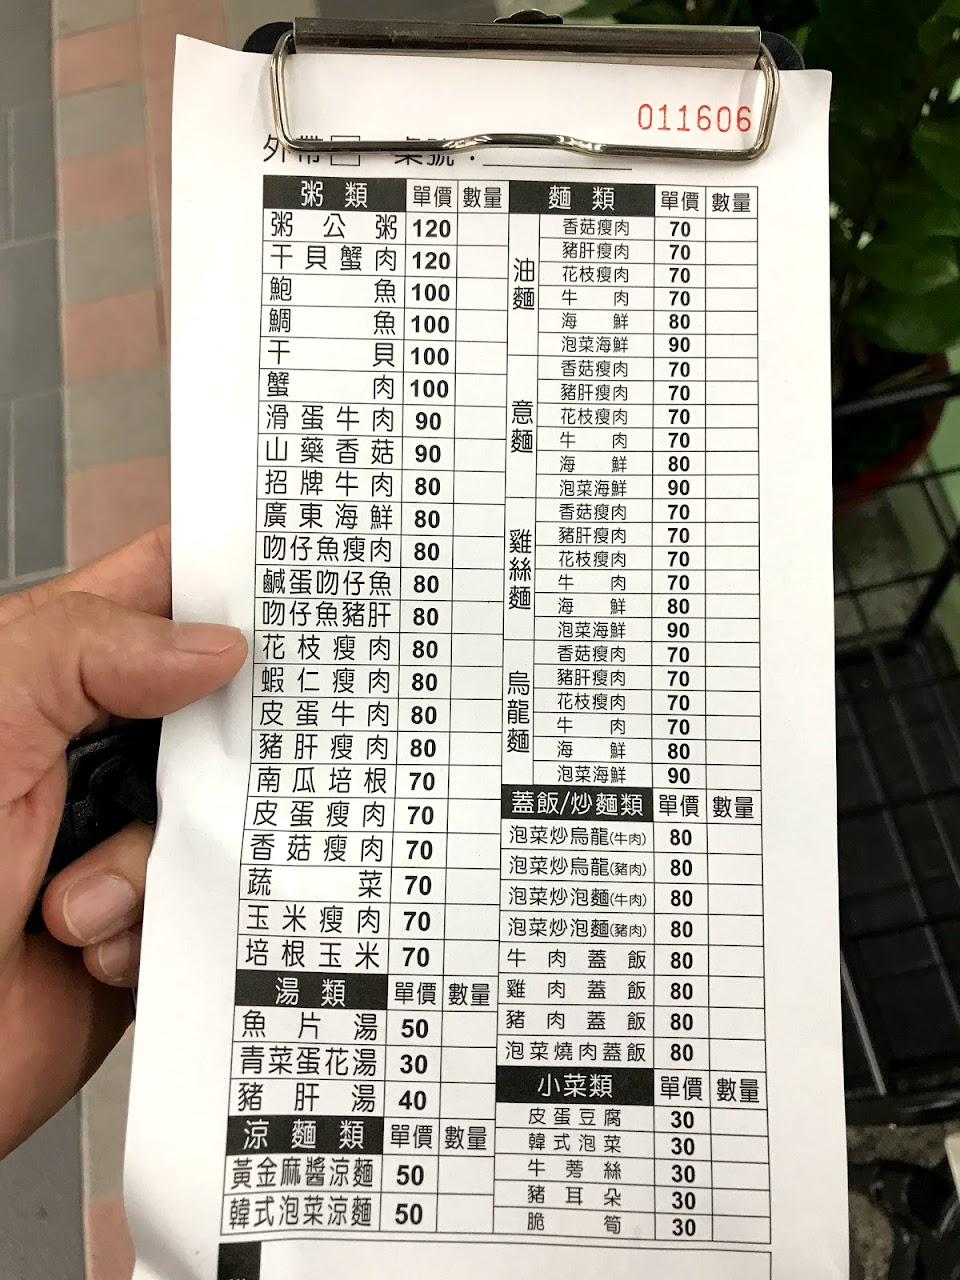 011606
外帶 桌號：
粥類 單價 數量
粥公粥 120
干貝蟹肉 120
鮑魚 100
鯛魚 100
干貝 100
蟹肉 100
滑蛋牛肉 90
山藥香菇 90
招牌牛肉 80
廣東海鮮 80
吻仔魚瘦肉 80
鹹蛋吻仔魚 80
吻仔魚豬肝 80
花枝瘦肉 80
蝦仁瘦肉 80
皮蛋牛肉 80
豬肝瘦肉 80
南瓜培根 70
皮蛋瘦肉 70
香菇瘦肉 70
蔬菜 70
玉米瘦肉 70
培根玉米 70
湯類 單價 數量
魚片湯 50
青菜蛋花湯 30
豬肝湯 40
涼麵類 單價 數量
黃金麻醬涼麵 50
韓式泡菜涼麵 50
麵類 單價 數量
油麵
香菇瘦肉 70
豬肝瘦肉 70
花枝瘦肉 70
牛肉 70
海鮮 80
泡菜海鮮 90
意麵
香菇瘦肉 70
豬肝瘦肉 70
花枝瘦肉 70
牛肉 70
海鮮 80
泡菜海鮮 90
雞絲麵
香菇瘦肉 70
豬肝瘦肉 70
花枝瘦肉 70
牛肉 70
海鮮 80
泡菜海鮮 90
烏龍麵
香菇瘦肉 70
豬肝瘦肉 70
花枝瘦肉 70
牛肉 70
海鮮 80
泡菜海鮮 90
蓋飯/炒麵類 單價 數量
泡菜炒烏龍(牛肉) 80
泡菜炒烏龍(豬肉) 80
泡菜炒泡麵(牛肉) 80
泡菜炒泡麵(豬肉) 80
牛肉蓋飯 80
雞肉蓋飯 80
豬肉蓋飯 80
泡菜燒肉蓋飯 80
小菜類 單價 數量
皮蛋豆腐 30
韓式泡菜 30
牛蒡絲 30
豬耳朵 30
脆筍 30